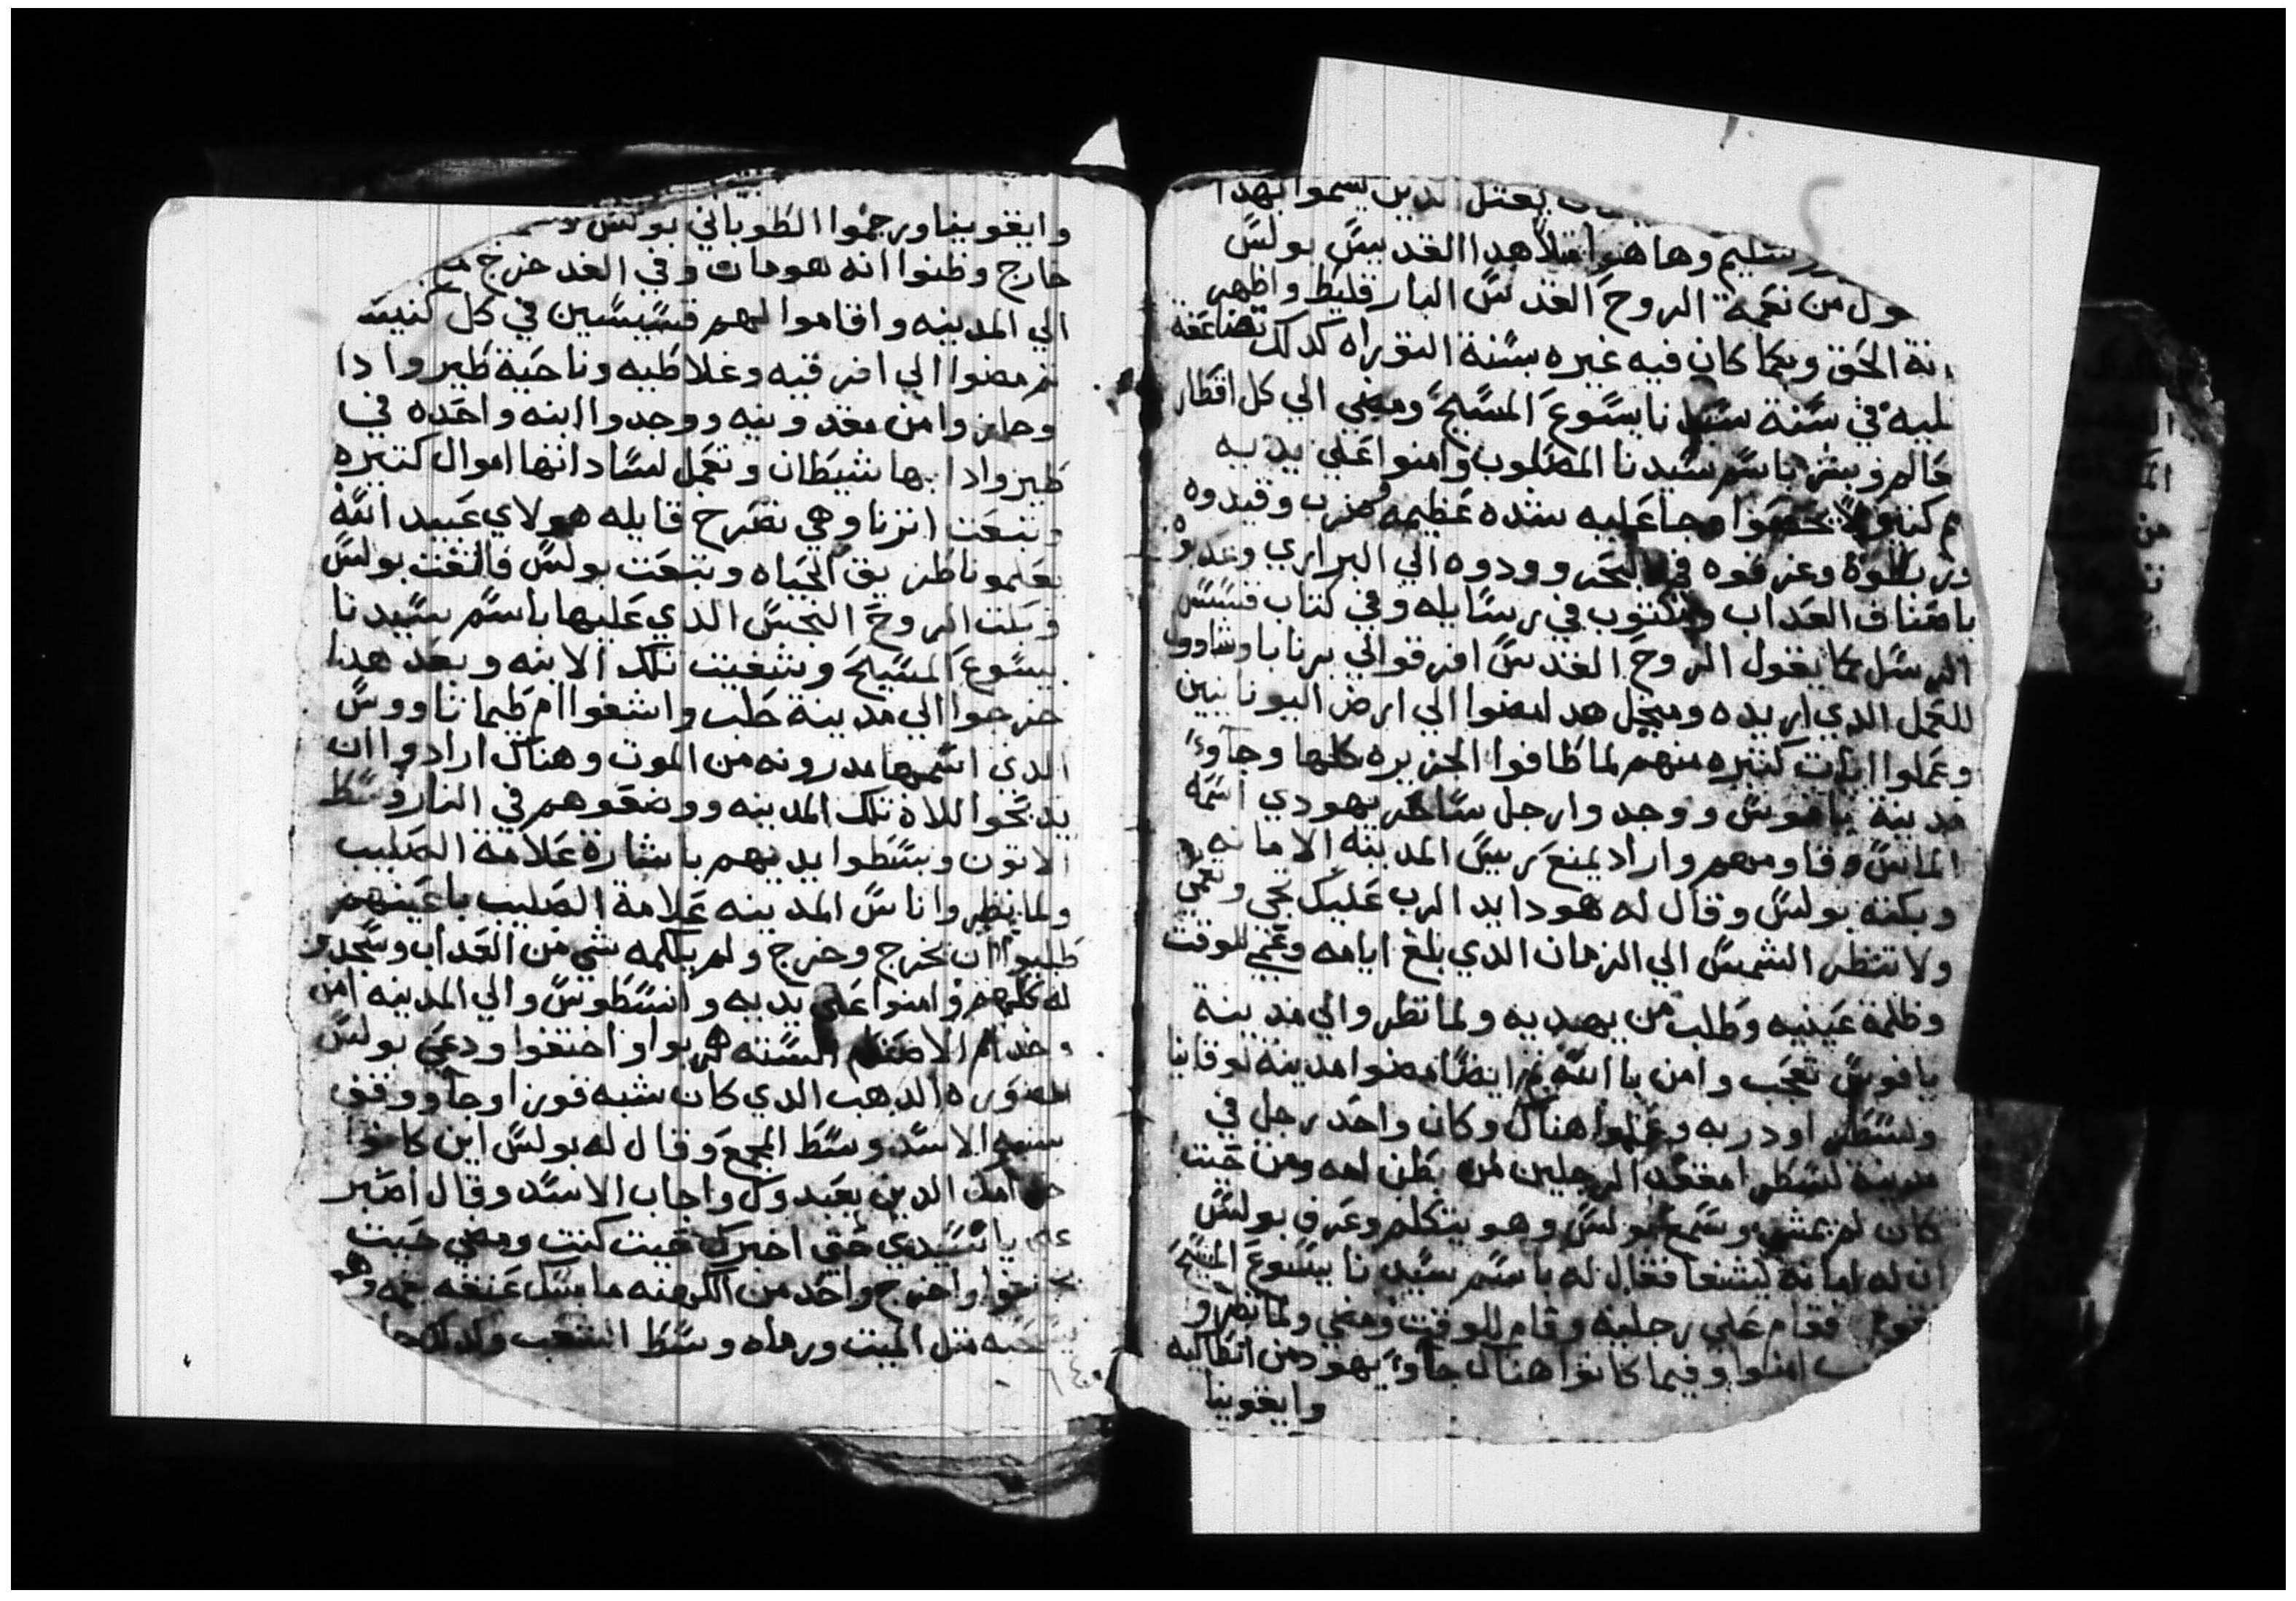 يقتل الدين يسموا بهدا
وها هنا امتلا هدا القديس بولس
من نعمة الروح القدس البارقليط واظهر
الحق وبكما كان فيه غيره بسنة التوراه كدلك تضاعفة
في سنة سيدنا يسوع المسيح ومضي الي كل اقطار
العالم وبشر باسم سيدنا المصلوب وامنوا علي يديه
وجا عليه شده عظيمه فضرب وقيدوه
وغرقوه في البحر وودوه الي البراري وعدبوه
باصناف العداب ومكتوب في رسايله وفي كتاب قسس
الرسل كما يقول الروح القدس افرقوا لي برنابا وشاوول
للعمل الدي اريده ومبجل هدا مضوا الي ارض اليونانيين
وعملوا ايات كتيره منهم لما طافوا الجزيره كلها وجاوا
مدينة يافوس ووجدوا رجل ساحر يهودي اسمه
الماس وقاومهم واراد يمنع ريس المدينه الامانه
وبكته بولس وقال له هودا يد الرب عليك تجي وتعمي
ولا تنظر الشمس الي الزمان الدي بلغ ايامه وعمي للوقت
وظلمة عينيه وطلب من يهديه ولما نظر والي مدينة
يافوس تعجب وامن باالله تم ايضا مضوا مدينة لوقانيا
ولسطر او دربه وعلموا هناك وكان واحد رجل في
مدينة لسطر امقعد الرجلين من بطن امه ومن حيت
كان لم يمشي وسمع بولس وهو يتكلم وعرف بولس
ان له امانه ليشفا فقال له باسم سيدنا يسوع المسيح
فقام علي رجليه وقام للوقت ومضي ولما نظروا
امنوا وفيما كانوا هناك جاوا يهود من انطاكيه
وايقونيا
وايقونيا ورجموا الطوباني بولس
خارج وظنوا انه هو مات وفي الغد خرج
الي المدينه واقاموا لهم قسيسين في كل كنيسه
تم مضوا الي افرقيه وغلاطيه وناحية طيروادا
وجازوا من مقدونيه ووجدوا ابنه واحده في
طيروادا بها شيطان وتعمل لساداتها اموال كتيره
وتبعت اترنا وهي تصرح قايله هولاي عبيد الله
يعلمونا طريق الحياه وتبعت بولس فالتفت بولس
وبكت الروح النجس الدي عليها باسم سيدنا
يسوع المسيح وشفيت تلك الابنه وبعد هدا
خرجوا الي مدينة حلب واشفوا ام طيماتاووس
الدي اسمها مدرونه من الموت وهناك ارادوا ان
يدبحوا للاة تلك المدينه ووضعوهم في النار وسط
الاتون وبسطوا يديهم باشارة علامة الصليب
ولما نظروا ناس المدينه علامة الصليب باعينهم
طلبوا ان يخرج وخرج ولم يكلمه شي من العداب وسجدو
له كلهم وامنوا علي يديه وانسطوس والي المدينه امن
وخدام الاصنام السته هربوا واختفوا ودعي بولس
صورة الدهب الدي كان شبه فورا وجا ووقف
الاسد وسط المجمع وقال له بولس اين كانوا
الدين يعبدوك واجاب الاسد وقال اصبر
علي ياسيدي حتي اخبرك حيت كنت ومضي حيت
واخرج واحد من الكهنه ماسك عنقه بفمه وهو
متل الميت ورماه وسط الشعب وكدلك